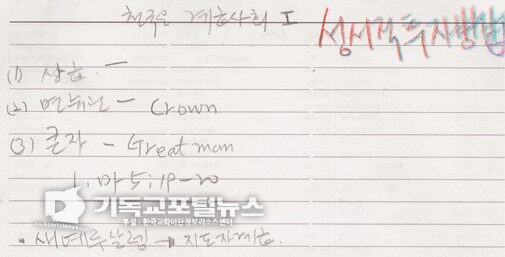 천국은 계층사회 I
성서적투자방법
(1) 상층. ー
(2) 면류관 - Crown
(3) 큰자 - Great man
1. 마 5:19-20
기독교포털뉴스
부설: 한국교회이단정보리소스센터
• 새예루살렘 → 지도자계층.